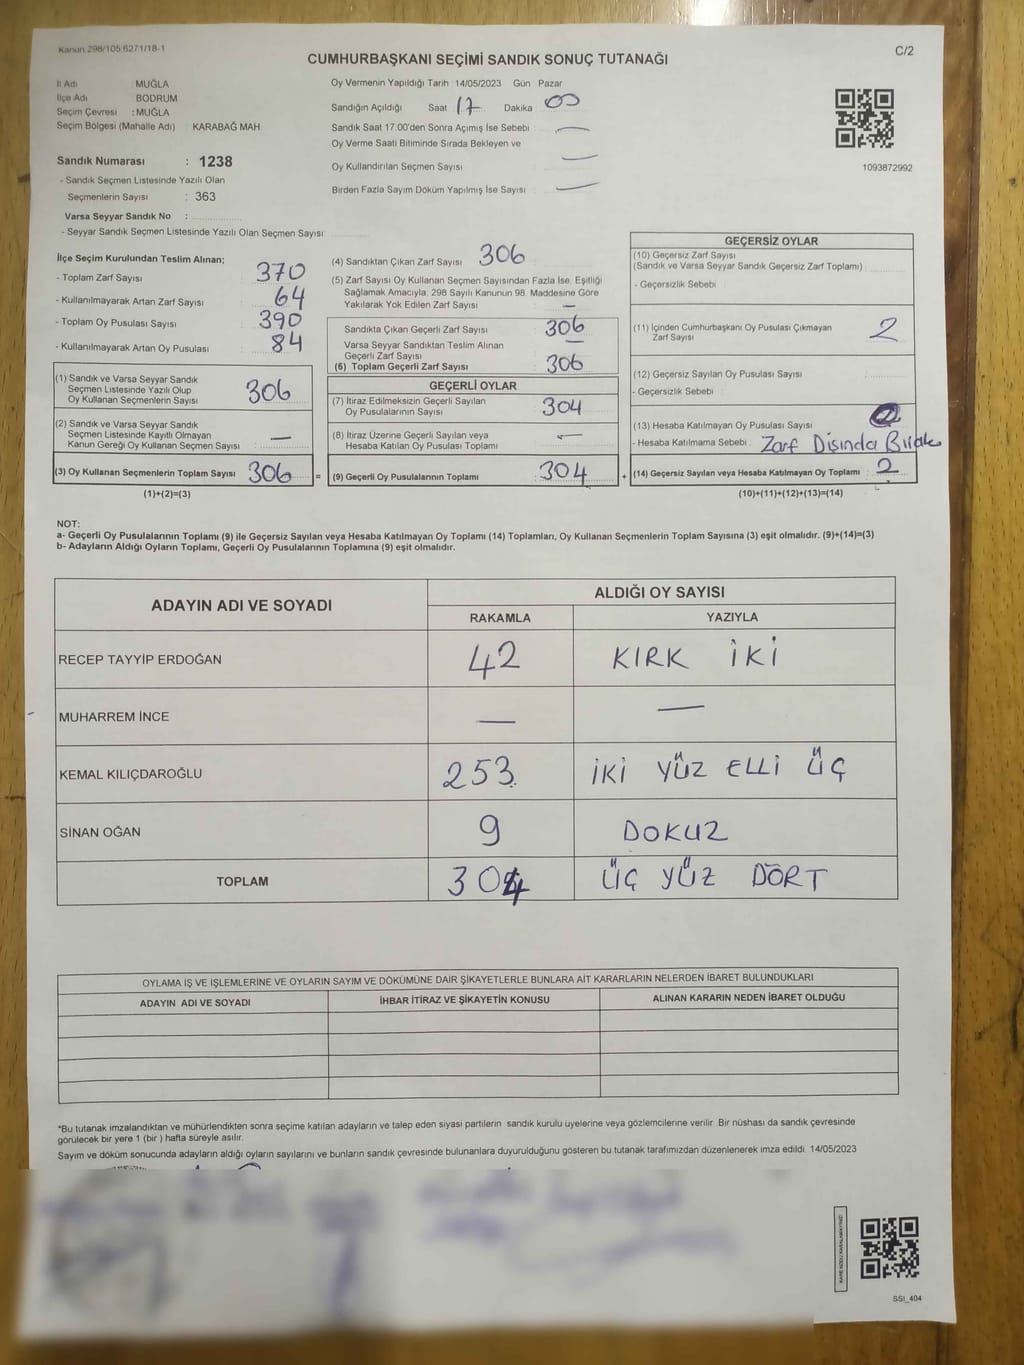 Kanun 298/105,6271/18-1
C/2
CUMHURBAŞKANI SEÇİMİ SANDIK SONUÇ TUTANAĞI
İl Adı MUĞLA
İlçe Adı BODRUM
Seçim Çevresi : MUĞLA
Seçim Bölgesi (Mahalle Adı) KARABAĞ MAH.
Sandık Numarası : 1238
- Sandık Seçmen Listesinde Yazılı Olan
Seçmenlerin Sayısı : 363
Varsa Seyyar Sandık No :
- Seyyar Sandık Seçmen Listesinde Yazılı Olan Seçmen Sayısı
Oy Vermenin Yapıldığı Tarih 14/05/2023 Gün Pazar
Sandığın Açıldığı Saat 17 Dakika 00
Sandık Saat 17:00'den Sonra Açımış İse Sebebi : —
Oy Verme Saati Bitiminde Sırada Bekleyen ve
Oy Kullandırılan Seçmen Sayısı —
Birden Fazla Sayım Döküm Yapılmış İse Sayısı —
1093872992
İlçe Seçim Kurulundan Teslim Alınan;
- Toplam Zarf Sayısı 370
- Kullanılmayarak Artan Zarf Sayısı 64
- Toplam Oy Pusulası Sayısı 390
- Kullanılmayarak Artan Oy Pusulası 84
(1) Sandık ve Varsa Seyyar Sandık
Seçmen Listesinde Yazılı Olup
Oy Kullanan Seçmenlerin Sayısı 306
(2) Sandık ve Varsa Seyyar Sandık
Seçmen Listesinde Kayıtlı Olmayan
Kanun Gereği Oy Kullanan Seçmen Sayısı —
(3) Oy Kullanan Seçmenlerin Toplam Sayısı 306 =
(1)+(2)=(3)
(4) Sandıktan Çıkan Zarf Sayısı 306
(5) Zarf Sayısı Oy Kullanan Seçmen Sayısından Fazla İse, Eşitliği
Sağlamak Amacıyla, 298 Sayılı Kanunun 98. Maddesine Göre
Yakılarak Yok Edilen Zarf Sayısı —
Sandıkta Çıkan Geçerli Zarf Sayısı 306
Varsa Seyyar Sandıktan Teslim Alınan
Geçerli Zarf Sayısı —
(6) Toplam Geçerli Zarf Sayısı 306
GEÇERLİ OYLAR
(7) İtiraz Edilmeksizin Geçerli Sayılan
Oy Pusulalarının Sayısı 304
(8) İtiraz Üzerine Geçerli Sayılan veya
Hesaba Katılan Oy Pusulası Toplamı —
(9) Geçerli Oy Pusulalarının Toplamı 304 +
GEÇERSİZ OYLAR
(10) Geçersiz Zarf Sayısı
(Sandık ve Varsa Seyyar Sandık Geçersiz Zarf Toplamı)
- Geçersizlik Sebebi
(11) İçinden Cumhurbaşkanı Oy Pusulası Çıkmayan
Zarf Sayısı 2
(12) Geçersiz Sayılan Oy Pusulası Sayısı
- Geçersizlik Sebebi :
(13) Hesaba Katılmayan Oy Pusulası Sayısı
- Hesaba Katılmama Sebebi : Zarf Dışında Bırak
(14) Geçersiz Sayılan veya Hesaba Katılmayan Oy Toplamı 2
(10)+(11)+(12)+(13)=(14)
NOT:
a- Geçerli Oy Pusulalarının Toplamı (9) ile Geçersiz Sayılan veya Hesaba Katılmayan Oy Toplamı (14) Toplamları, Oy Kullanan Seçmenlerin Toplam Sayısına (3) eşit olmalıdır. (9)+(14)=(3)
b- Adayların Aldığı Oyların Toplamı, Geçerli Oy Pusulalarının Toplamına (9) eşit olmalıdır.
ADAYIN ADI VE SOYADI ALDIĞI OY SAYISI
RAKAMLA YAZIYLA
RECEP TAYYİP ERDOĞAN 42 KIRK İKİ
MUHARREM İNCE — —
KEMAL KILIÇDAROĞLU 253 İKİ YÜZ ELLİ ÜÇ
SİNAN OĞAN 9 DOKUZ
TOPLAM 304 ÜÇ YÜZ DÖRT
OYLAMA İŞ VE İŞLEMLERİNE VE OYLARIN SAYIM VE DÖKÜMÜNE DAİR ŞİKAYETLERLE BUNLARA AİT KARARLARIN NELERDEN İBARET BULUNDUKLARI
ADAYIN ADI VE SOYADI İHBAR İTİRAZ VE ŞİKAYETİN KONUSU ALINAN KARARIN NEDEN İBARET OLDUĞU
*Bu tutanak imzalandıktan ve mühürlendikten sonra seçime katılan adayların ve talep eden siyasi partilerin sandık kurulu üyelerine veya gözlemcilerine verilir. Bir nüshası da sandık çevresinde
görülecek bir yere 1 (bir ) hafta süreyle asılır.
Sayım ve döküm sonucunda adayların aldığı oyların sayılarını ve bunların sandık çevresinde bulunanlara duyurulduğunu gösteren bu tutanak tarafımızdan düzenlenerek imza edildi. 14/05/2023
SSI_404